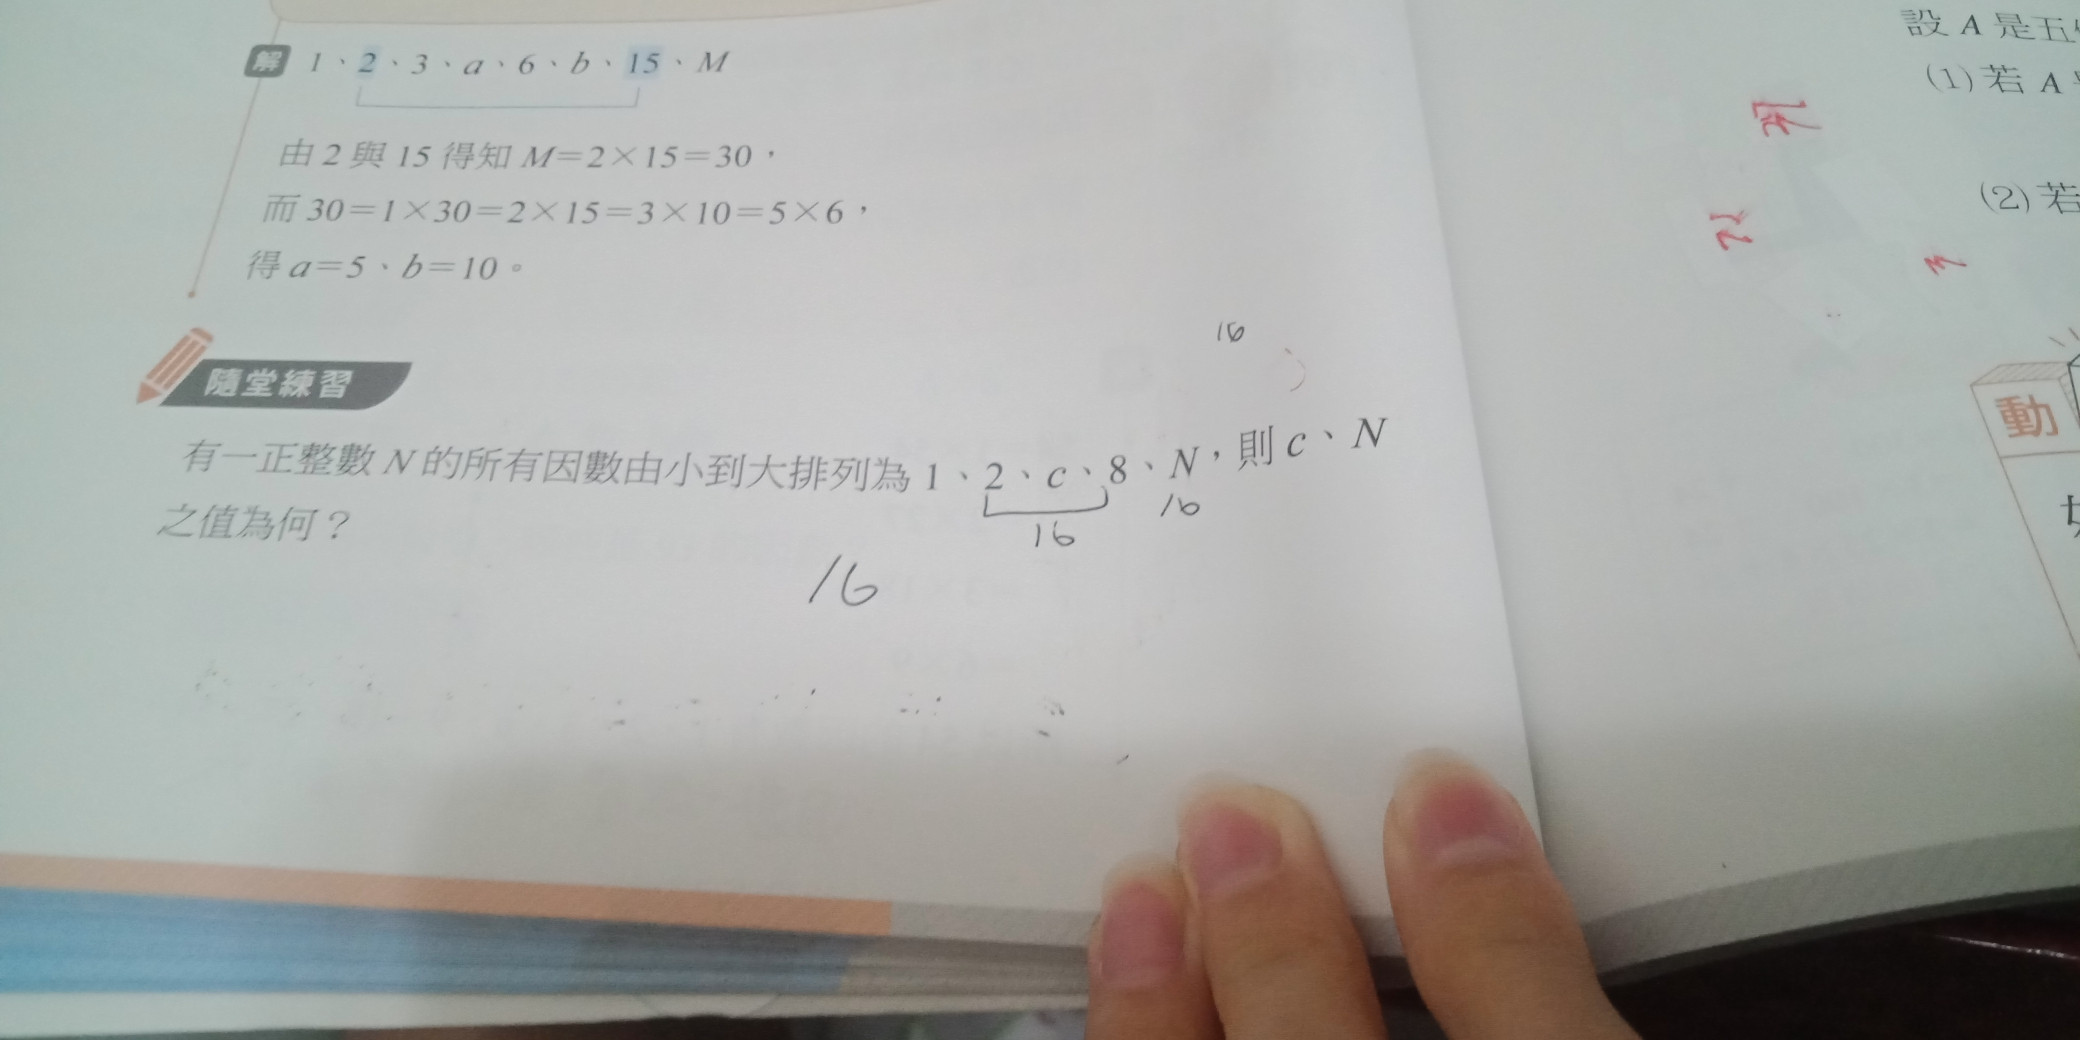 解 1、2、3、a、6、b、15、M
由 2 與 15 得知 M=2×15=30，
而 30=1×30=2×15=3×10=5×6，
得 a=5、b=10。
16
隨堂練習
有一正整數 N 的所有因數由小到大排列為 1、2、c、8、N，則 c、N
16
16
之值為何？
16
設 A 是五
(1) 若 A
(2) 若
動